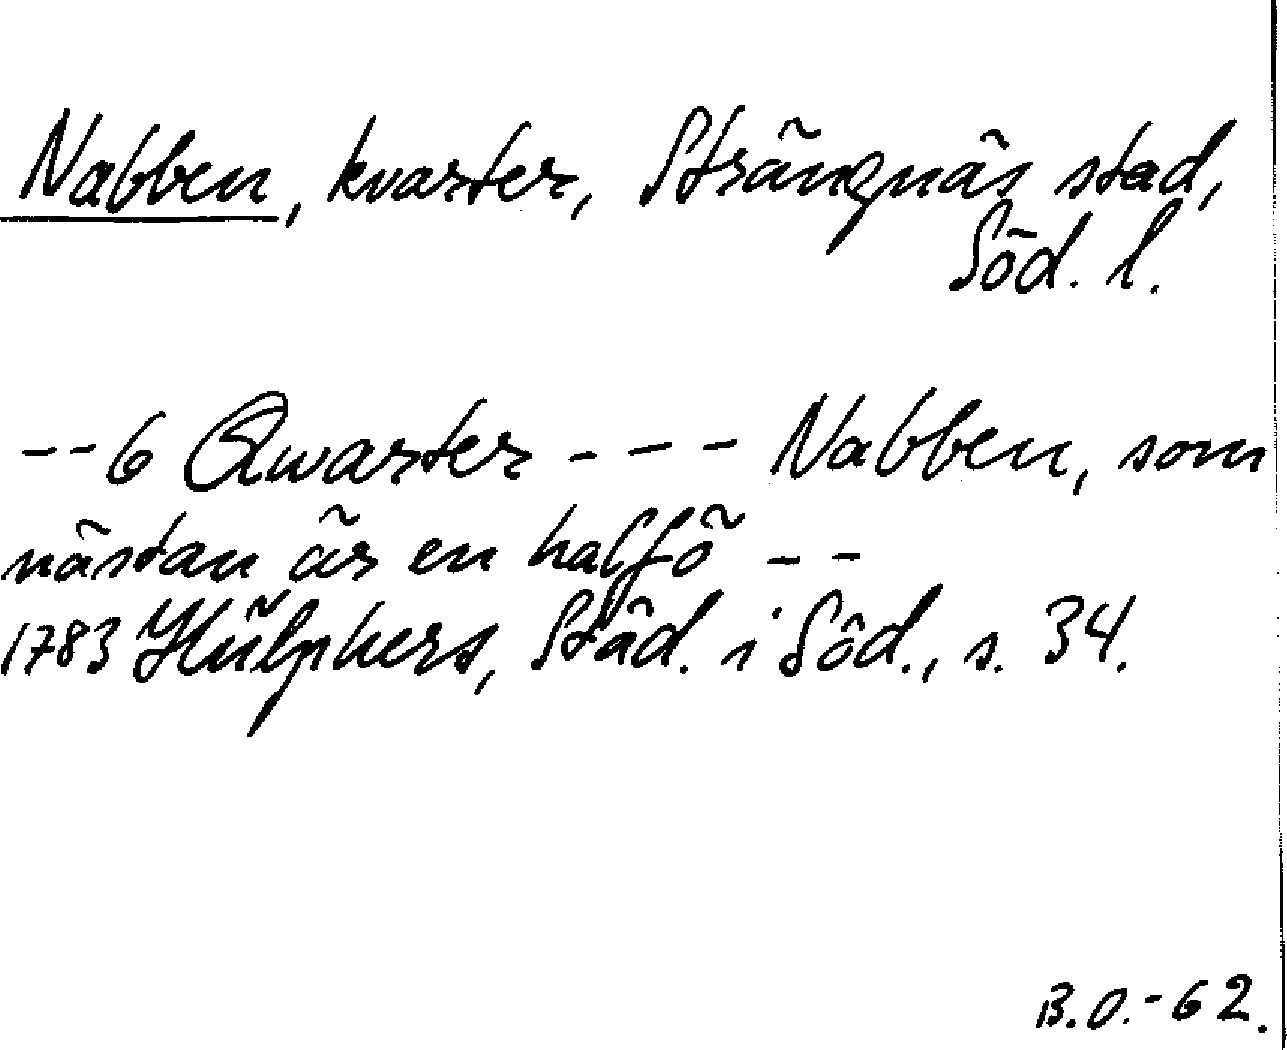 Nabben, kvarter, Strängnäs stad,
Söd. l.
--6 Qwarter --- Nabben, som
nästan är en halfö --
1783 Hülphers, Städ. i Söd., s. 34.
B.O.-62.